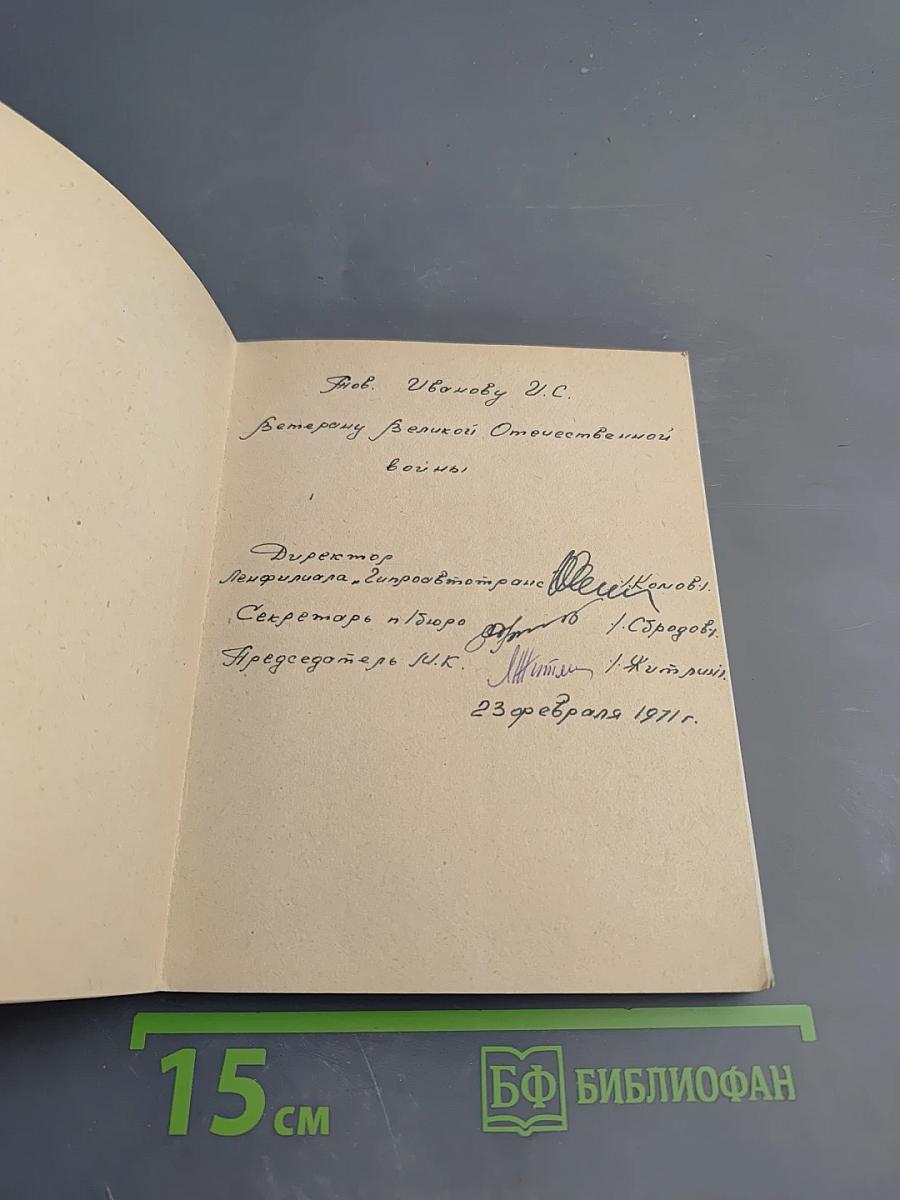 Тов. Иванову И.С.
Ветерану Великой Отечественной
войны
Директор
Ленфилиала „Гипроавтотранс /Комов/.
Секретарь п/бюро /Сбродов/.
Председатель М.К. /Житлин/.
23 февраля 1971 г.
15 см
БФ БИБЛИОФАН